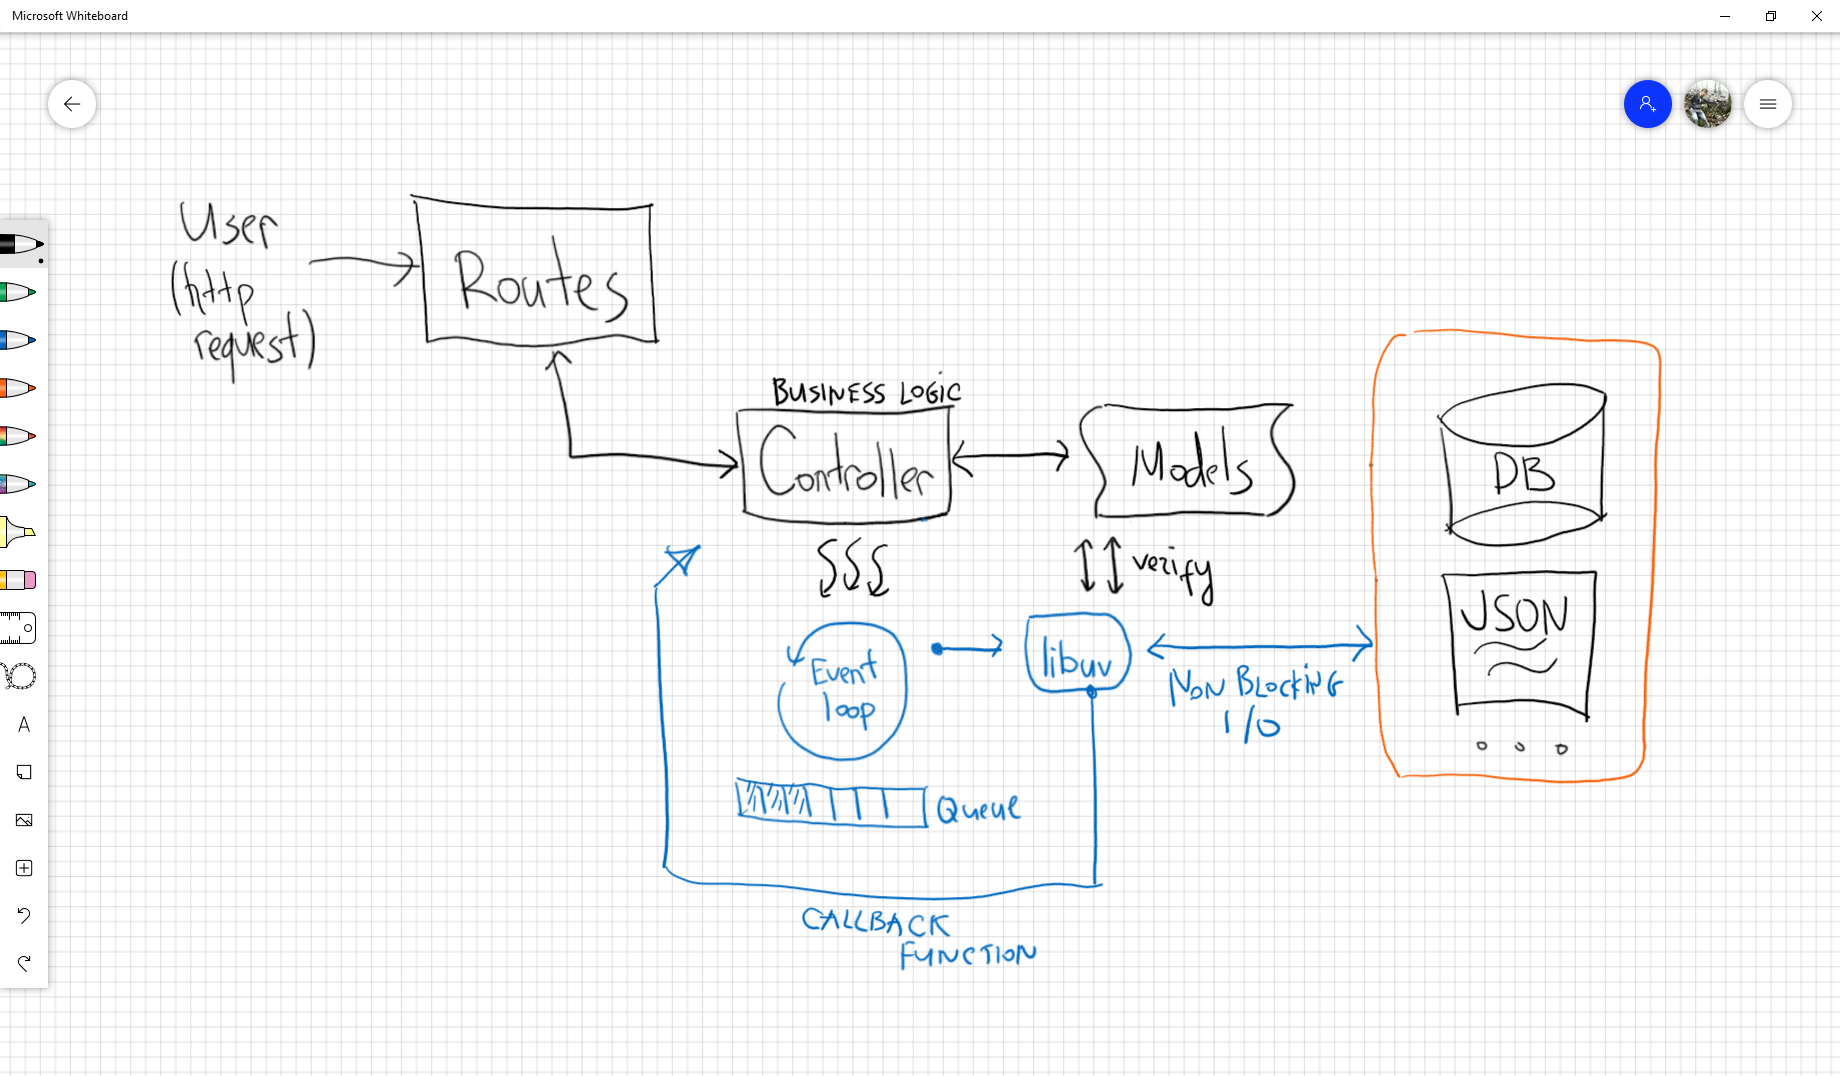 Microsoft Whiteboard
User
(http
request)
Routes
BUSINESS LOGIC
Controller
Models
verify
DB
JSON
Event
loop
libuv
NON BLOCKING
I/O
Queue
CALLBACK
FUNCTION
A